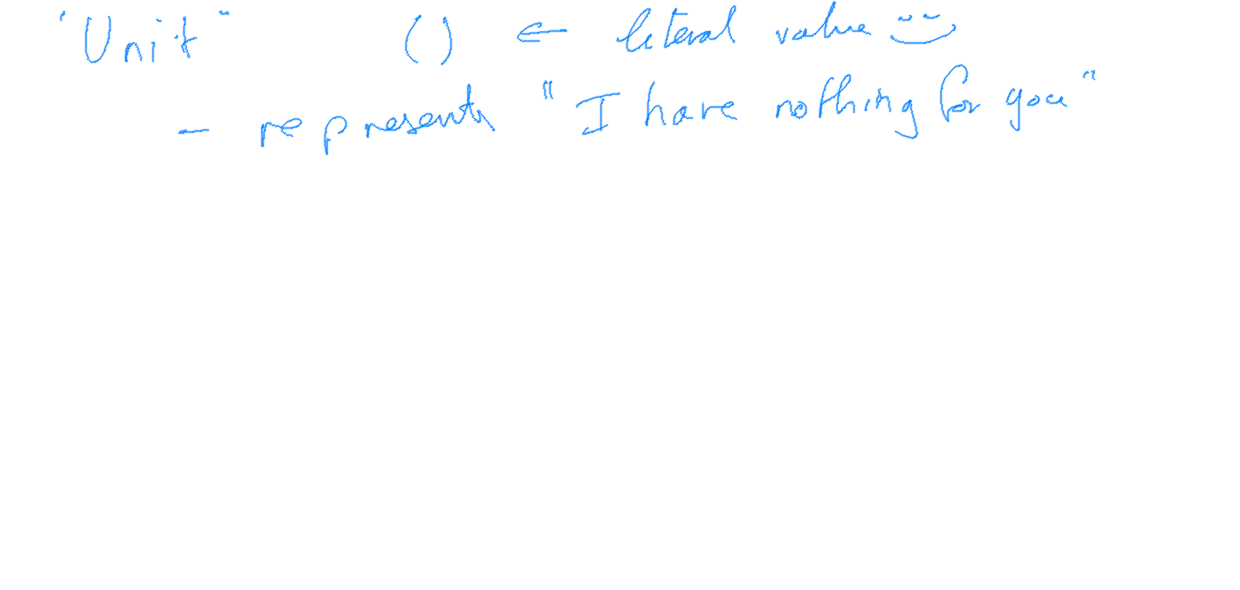 "Unit" () ← literal value
- represents "I have nothing for you"